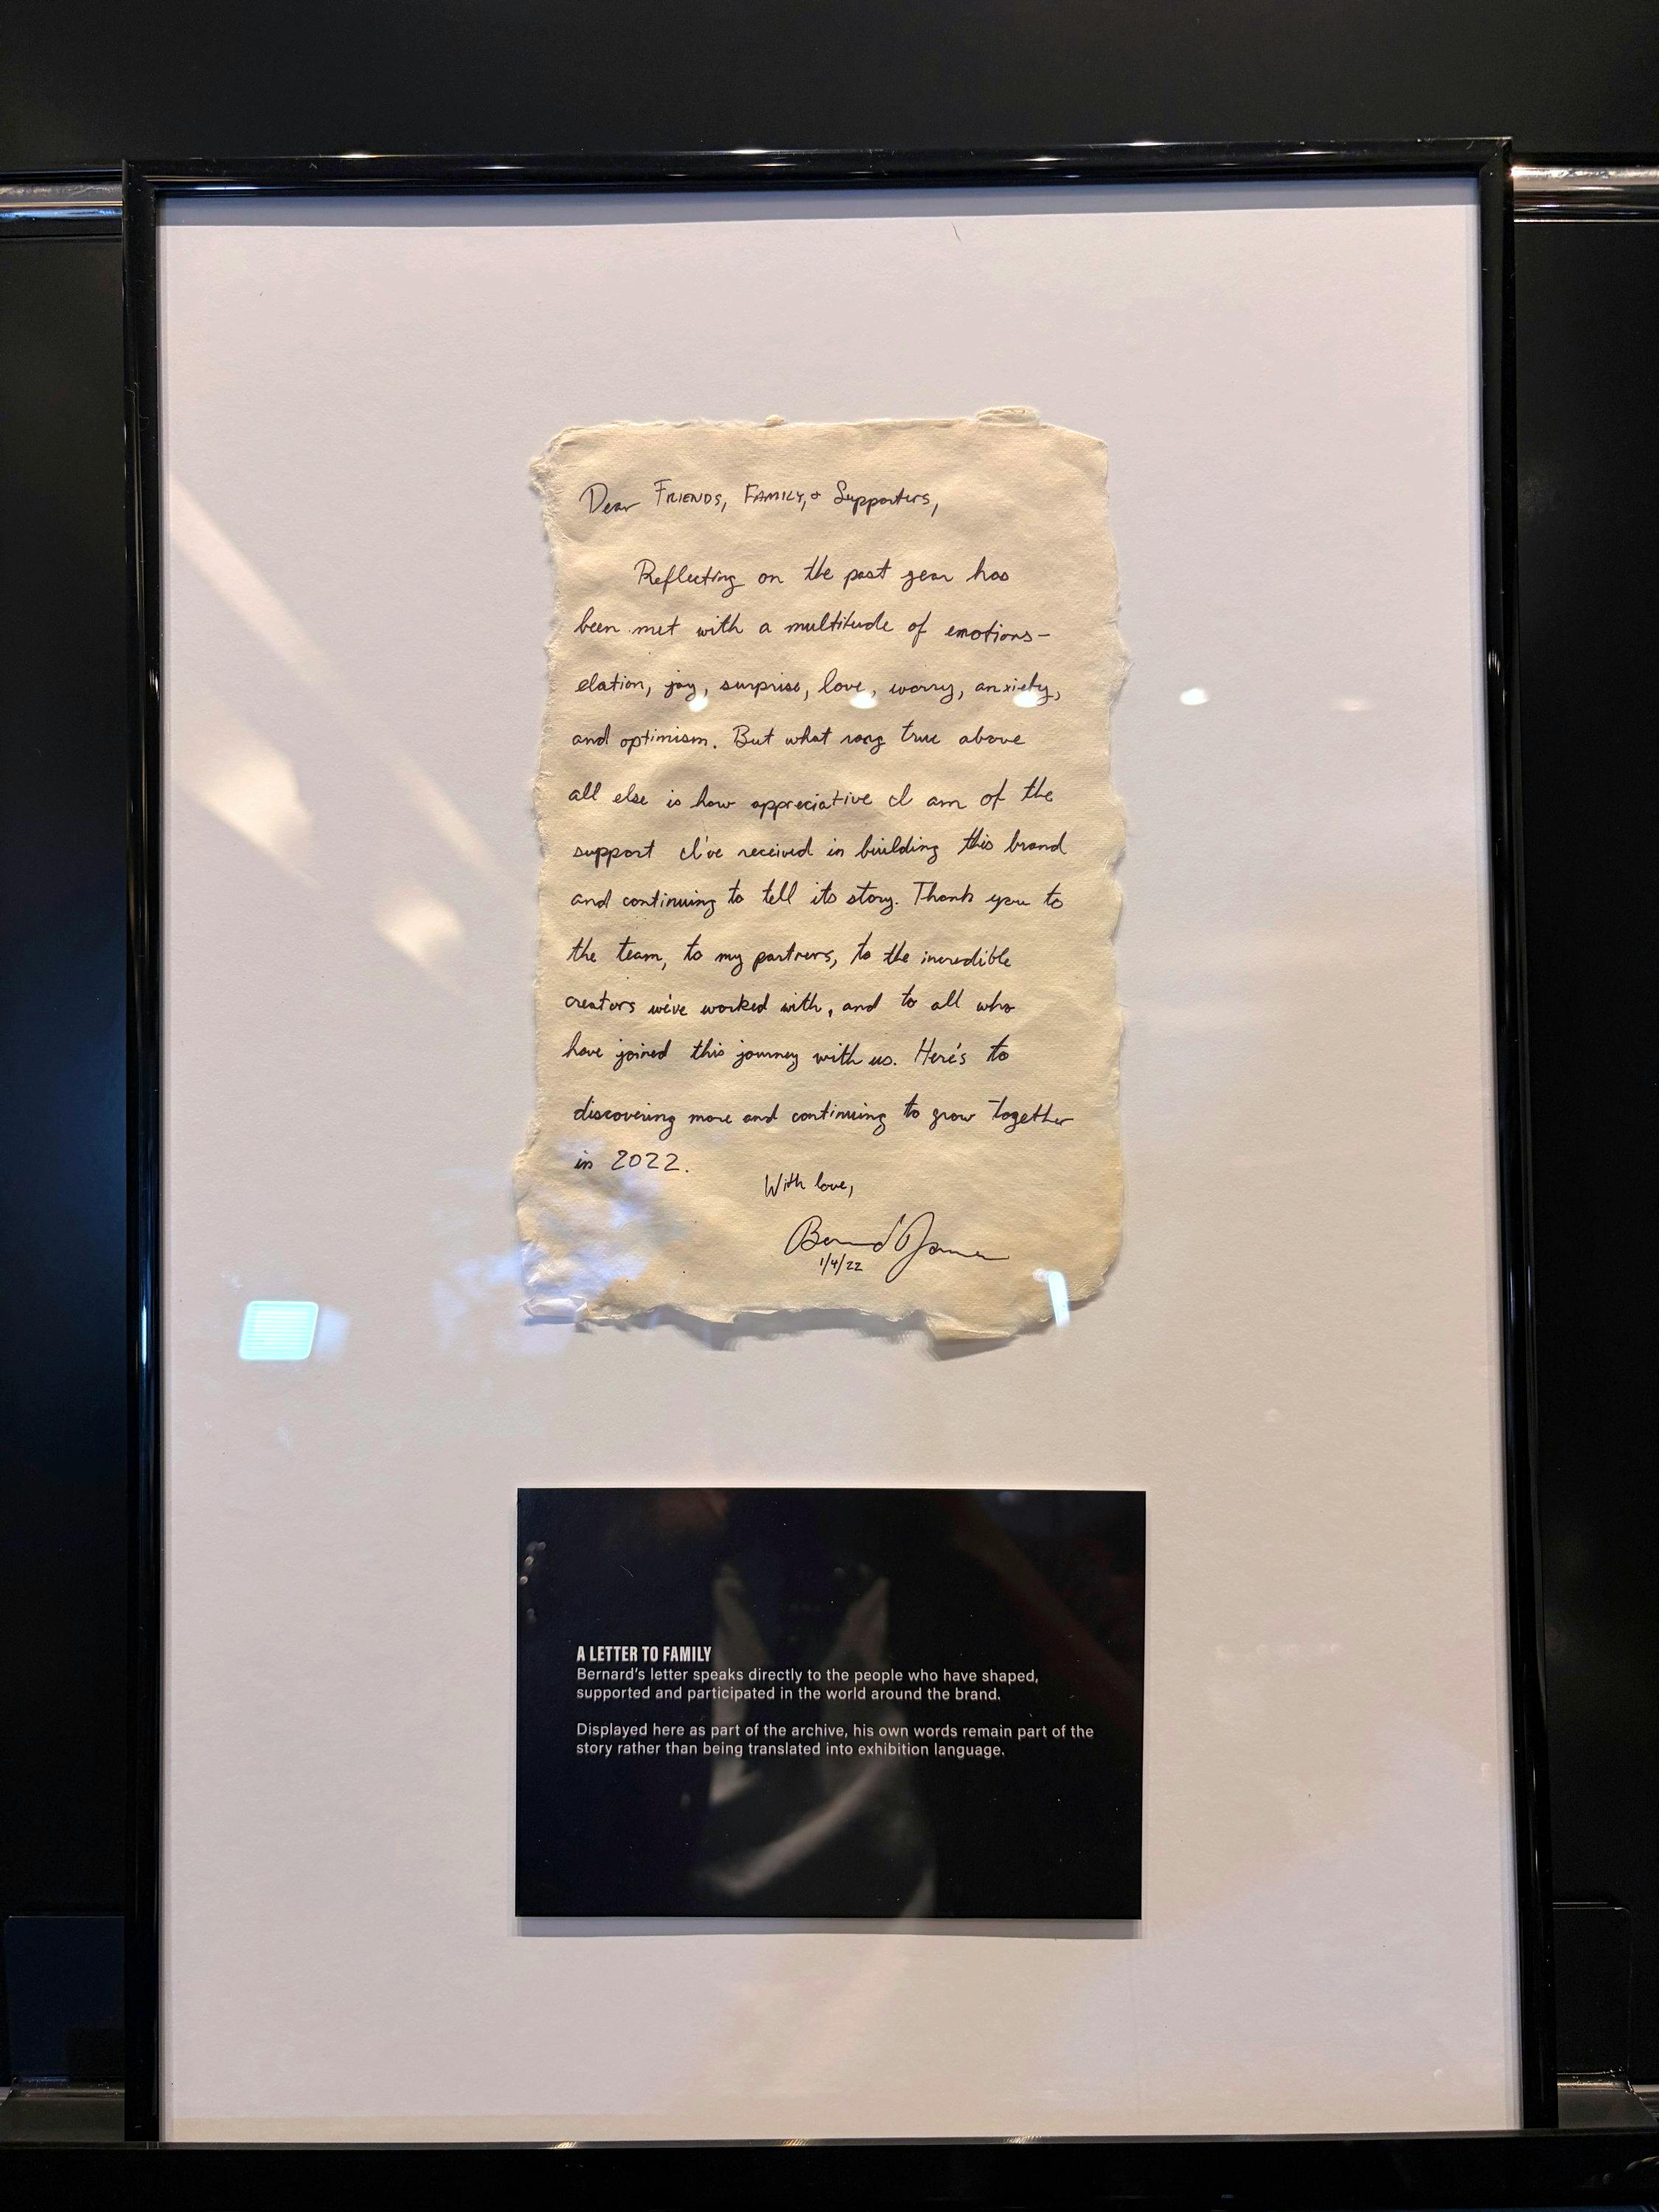 Dear FRIENDS, FAMILY, + Supporters,
Reflecting on the past year has
been met with a multitude of emotions-
elation, joy, surprise, love, worry, anxiety,
and optimism. But what rang true above
all else is how appreciative I am of the
support I've received in building this brand
and continuing to tell its story. Thank you to
the team, to my partners, to the incredible
creators we've worked with, and to all who
have joined this journey with us. Here's to
discovering more and continuing to grow together
in 2022.
With love,
Bernard James
1/4/22
A LETTER TO FAMILY
Bernard's letter speaks directly to the people who have shaped,
supported and participated in the world around the brand.
Displayed here as part of the archive, his own words remain part of the
story rather than being translated into exhibition language.